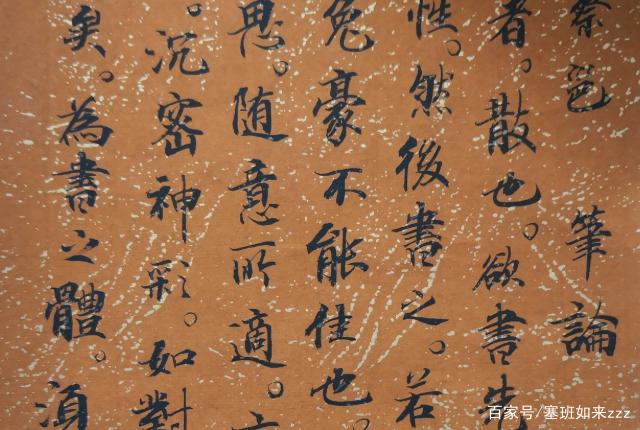 蔡邕 筆論
者。散也。欲書先
性。然後書之。若
兔豪不能佳也。
思。随意所適。
。沉密神彩。如對
矣。為書之體。須
百家号/塞班如来zzz